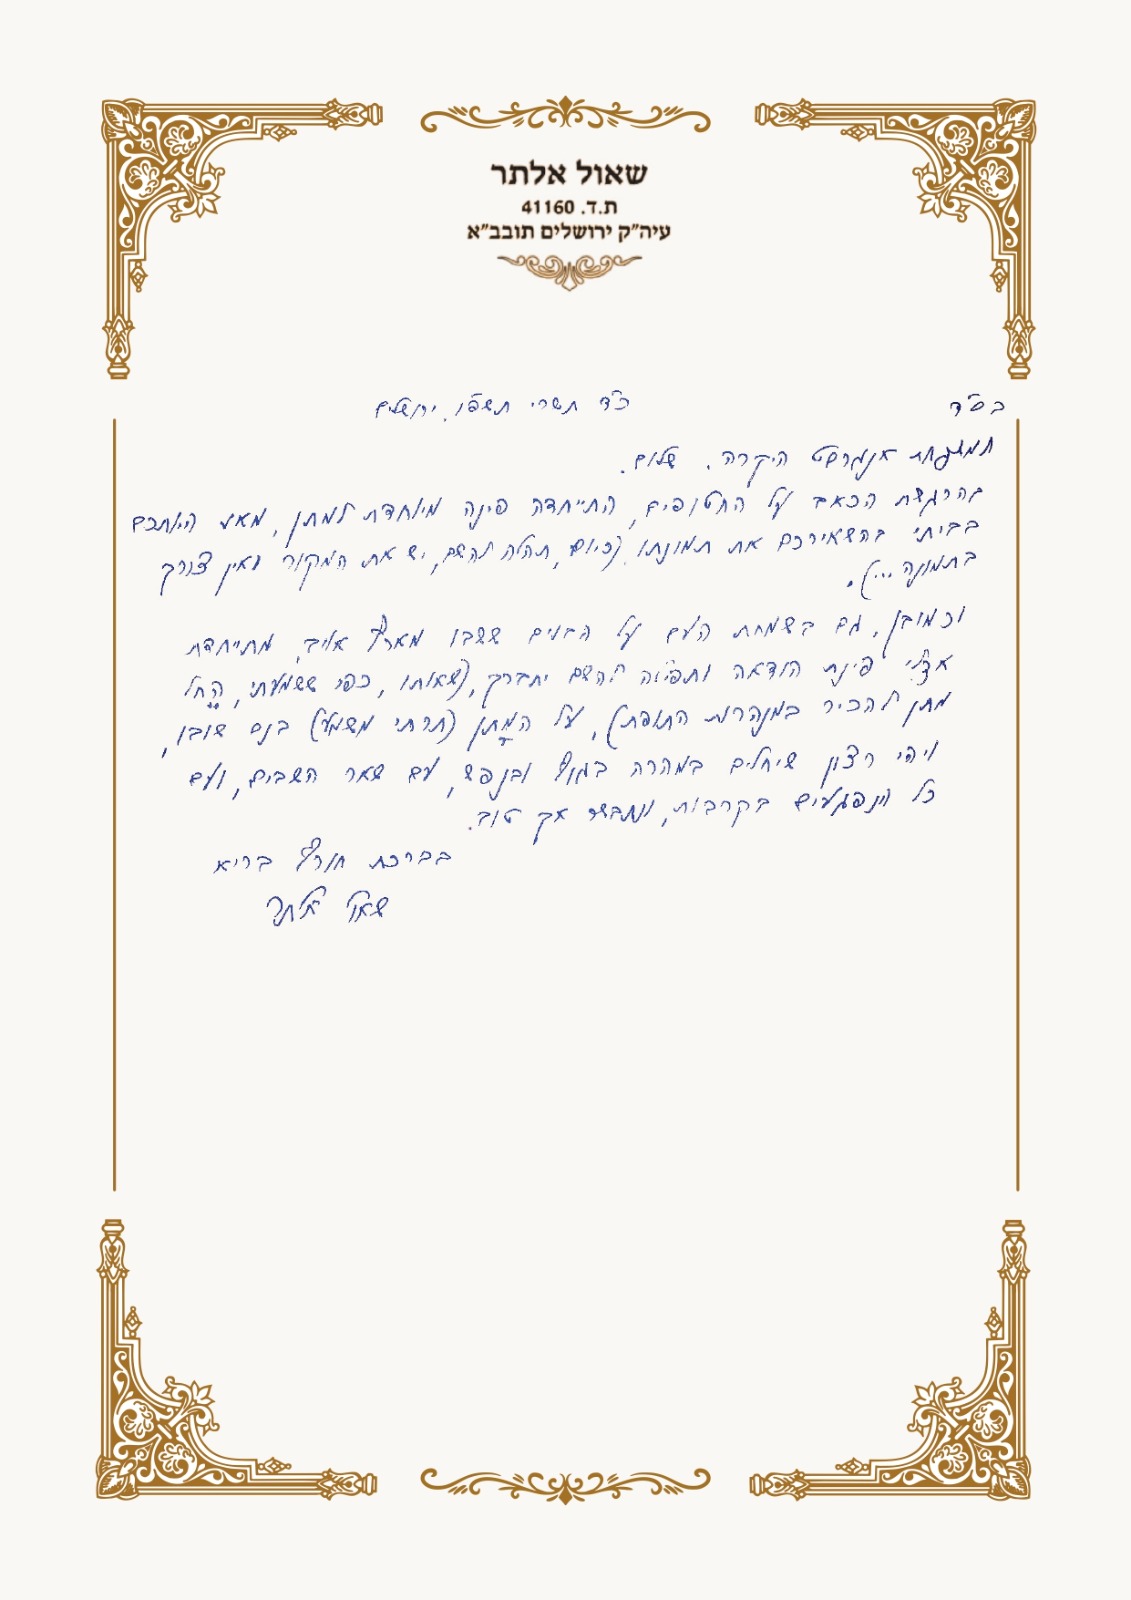 שאול אלתר
ת.ד. 41160
עיה"ק ירושלים תובב"א
בס"ד
כ"ד תשרי תשפ"ו, ירושלים
משפחת אנגרסט היקרה, שלום.
בהרגשת הכאב על החטופים, התייחדה פינה מיוחדת למתן, מאז היותכם
בביתי בהשאירכם את תמונתו (כיום, תהלה להשם, יש את המקור ואין צורך
בתמונה...).
וכמובן, גם בשמחת העם על הבנים ששבו מארץ אויב, מתייחדת
אצלי פינת הודאה ותפילה להשם יתברך, (שאותו, כפי ששמעתי, החל
מתן להכיר במנהרות התופת), על המתן (תרתי משמע) בנם שובו,
ויהי רצון שיחלים במהרה בגוף ובנפש, עם שאר השבים, ועם
כל הנפגעים בקרבות, ונתבשר אך טוב.
בברכת חורף בריא
שאול אלתר